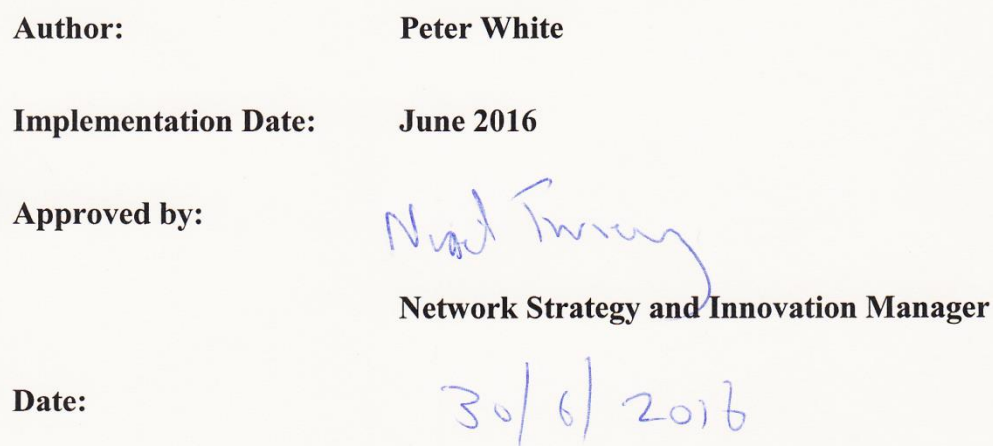 Author: Peter White
Implementation Date: June 2016
Approved by:
Network Strategy and Innovation Manager
Date: 30/6/2016